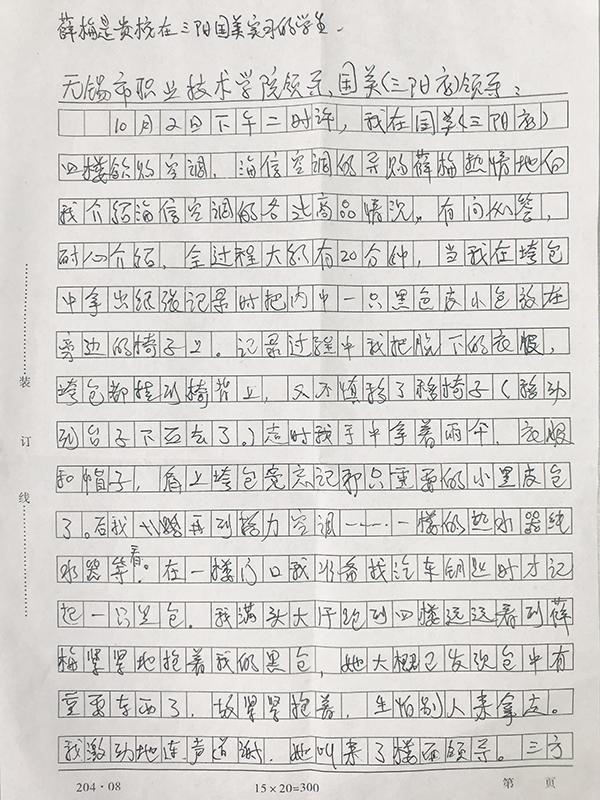 薛梅是贵校在三阳国美实习的学生.
无锡市职业技术学院领导、国美(三阳店)领导:
10月2日下午二时许，我在国美(三阳店)
四楼欲购空调，海信空调的导购薛梅热情地向
我介绍海信空调的各类商品情况。有问必答，
耐心介绍，全过程大约有20分钟，当我在垮包
中拿出纸张记录时把内中一只黑色皮小包放在
旁边的椅子上。记录过程中我把脱下的衣服，
垮包都挂到椅背上，又不慎移了移椅子(移动
到台子下面去了。)走时我手中拿着雨伞、衣服
和帽子，肩上垮包竟忘记那只重要的小黑皮包
了。后我再到格力空调……一楼的热水器纯
水器等看。在一楼门口我准备找汽车钥匙时才记
起一只黑包。我满头大汗跑到四楼远远看到薛
梅紧紧地抱着我的黑包，她大概已发现包中有
重要东西了，故紧紧抱着，生怕别人来拿走。
我激动地连声道谢，她叫来了楼面领导。三方
装
订
线
204·08
15×20=300
第 页